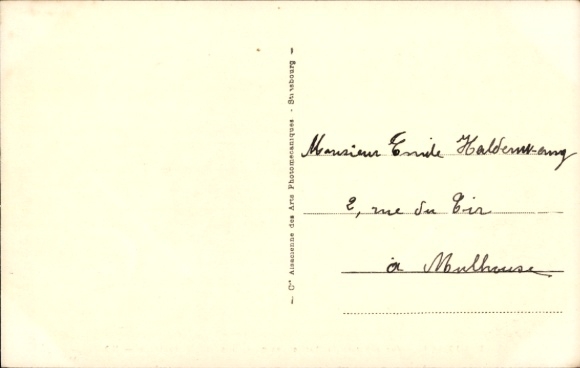 — Cie Alsacienne des Arts Photomécaniques - Strasbourg —
Monsieur Emile Haldenwang
2, rue du Tir
à Mulhouse